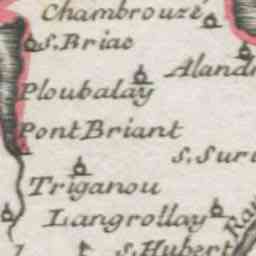 Chambrouzé
S. Briac
Aland
Ploubalay
Pont Briant
S. Suri
Triganou
Langrollay
Ra
S. Hubert